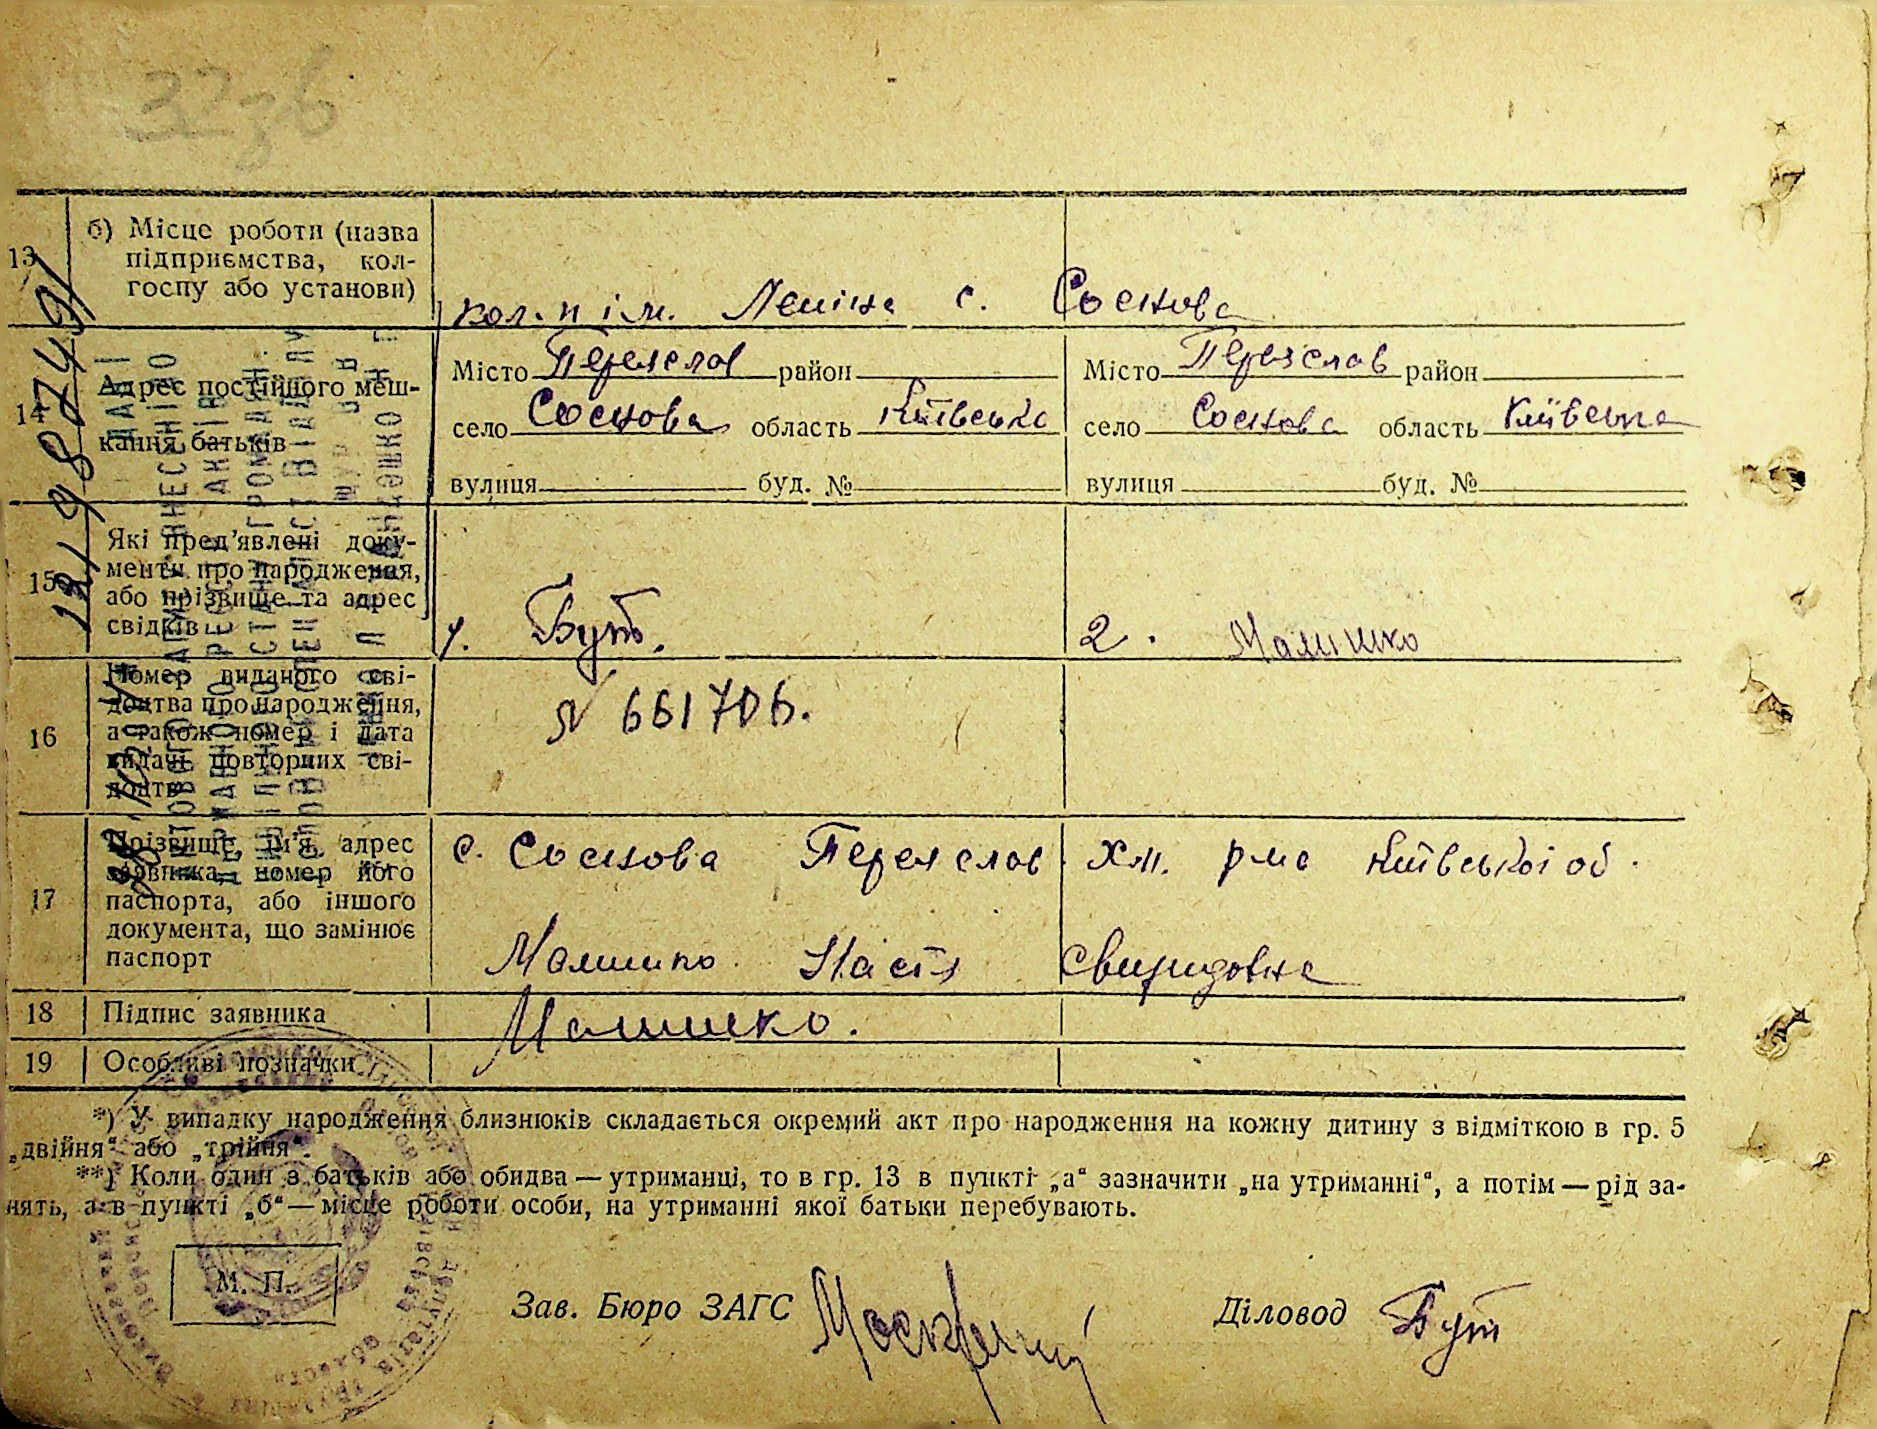 32зв
13 б) Місце роботи (назва
підприємства, кол-
госпу або установи)
кол. п ім. Леніна с. Соснова
14 Адрес постійного меш-
кання батьків
Місто Переяслов район Місто Переяслав район
село Соснова область Київська село Соснова область Київська
вулиця буд. № вулиця буд. №
15 Які пред'явлені доку-
менти про народження,
або прізвище та адрес
свідків
1. Бут. 2. Малишко
16 Номер виданого сві-
доцтва про народження,
а також номер і дата
видачі повторних сві-
доцтв
N 661706.
17 Прізвище, ім'я, адрес
заявника, номер його
паспорта, або іншого
документа, що замінює
паспорт
с. Соснова Переяслав Хм. р-на Київської об.
Малишко Настя Свиридовна
18 Підпис заявника Малишко.
19 Особливі позначки
*) У випадку народження близнюків складається окремий акт про народження на кожну дитину з відміткою в гр. 5
„двійня“ або „трійня“.
**) Коли один з батьків або обидва — утриманці, то в гр. 13 в пункті „а“ зазначити „на утриманні“, а потім — рід за-
нять, а в пункті „б“ — місце роботи особи, на утриманні якої батьки перебувають.
М. П.
Зав. Бюро ЗАГС Діловод Бут